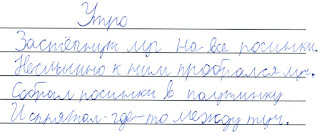 Утро
Застёгнут луг на все росинки.
Неслышно к ним пробрался луч.
Собрал росинки в паутинку
И спрятал где-то между туч.